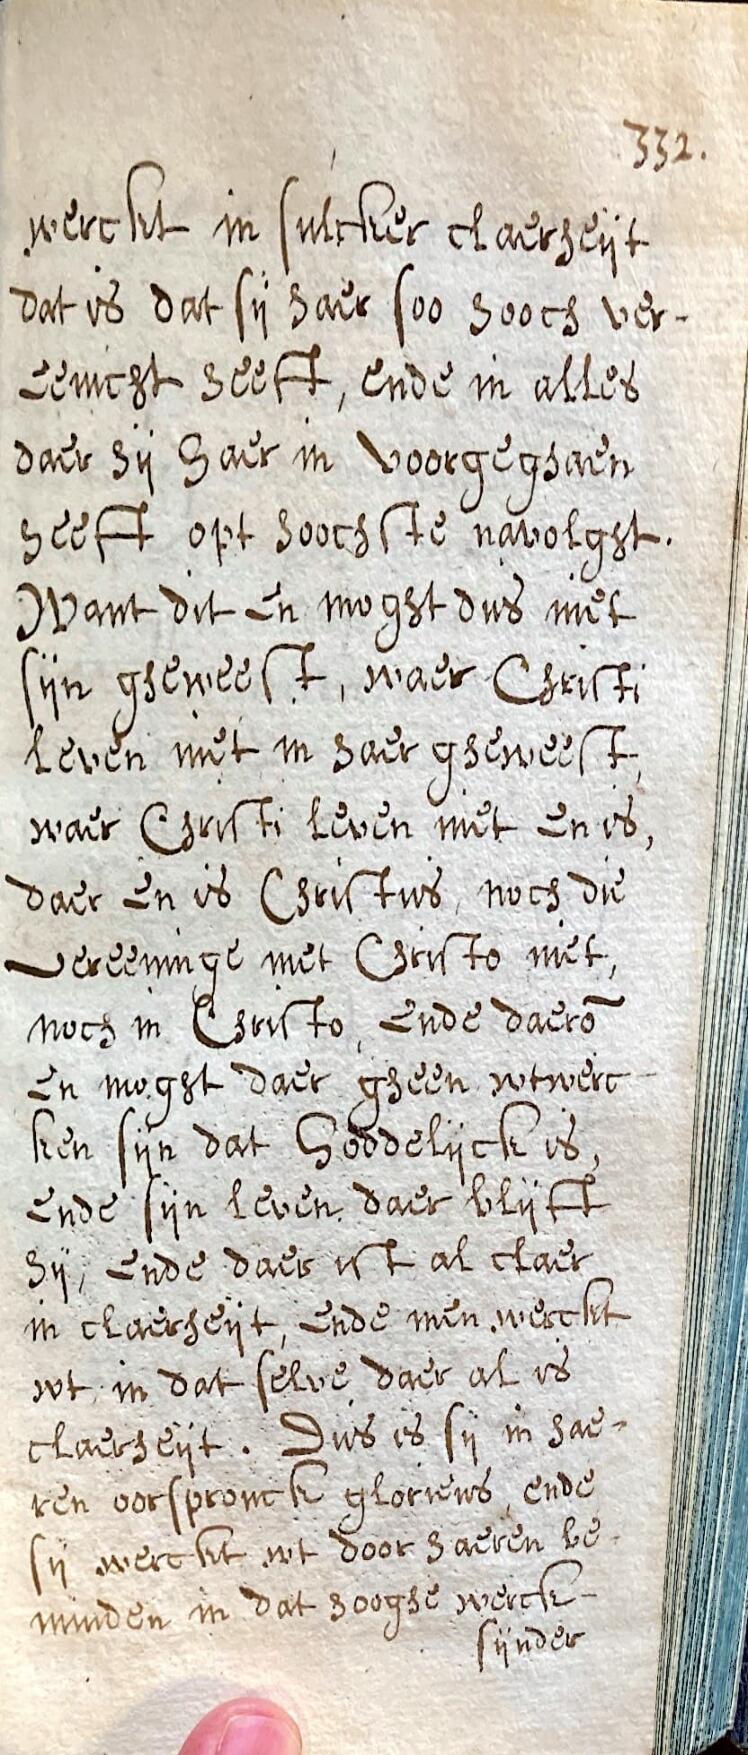 332.
werckt in sulcker claerheijt
dat is dat sij haer soo hooch ver-
eenicht heeft, ende in alles
daer hij haer in voorgeghaen
heeft opt hoochste navolght.
Want dit en moght dus niet
sijn gheweest, waer Christi
leven niet in haer gheweest,
waer Christi leven niet en is,
daer en is Christus, noch die
vereeninge met Christo niet,
noch in Christo, ende daerō
en moght daer gheen wtwerc-
ken sijn dat Goddelijck is,
ende sijn leven daer blijft
hij, ende daer ist al claer
in claerheijt, ende men werckt
wt in dat selve daer al is
claerheijt. Dus is sij in hae-
ren oorspronck glorieus, ende
sij werckt wt door haeren be-
minden in dat hooghe werck-
sijnder